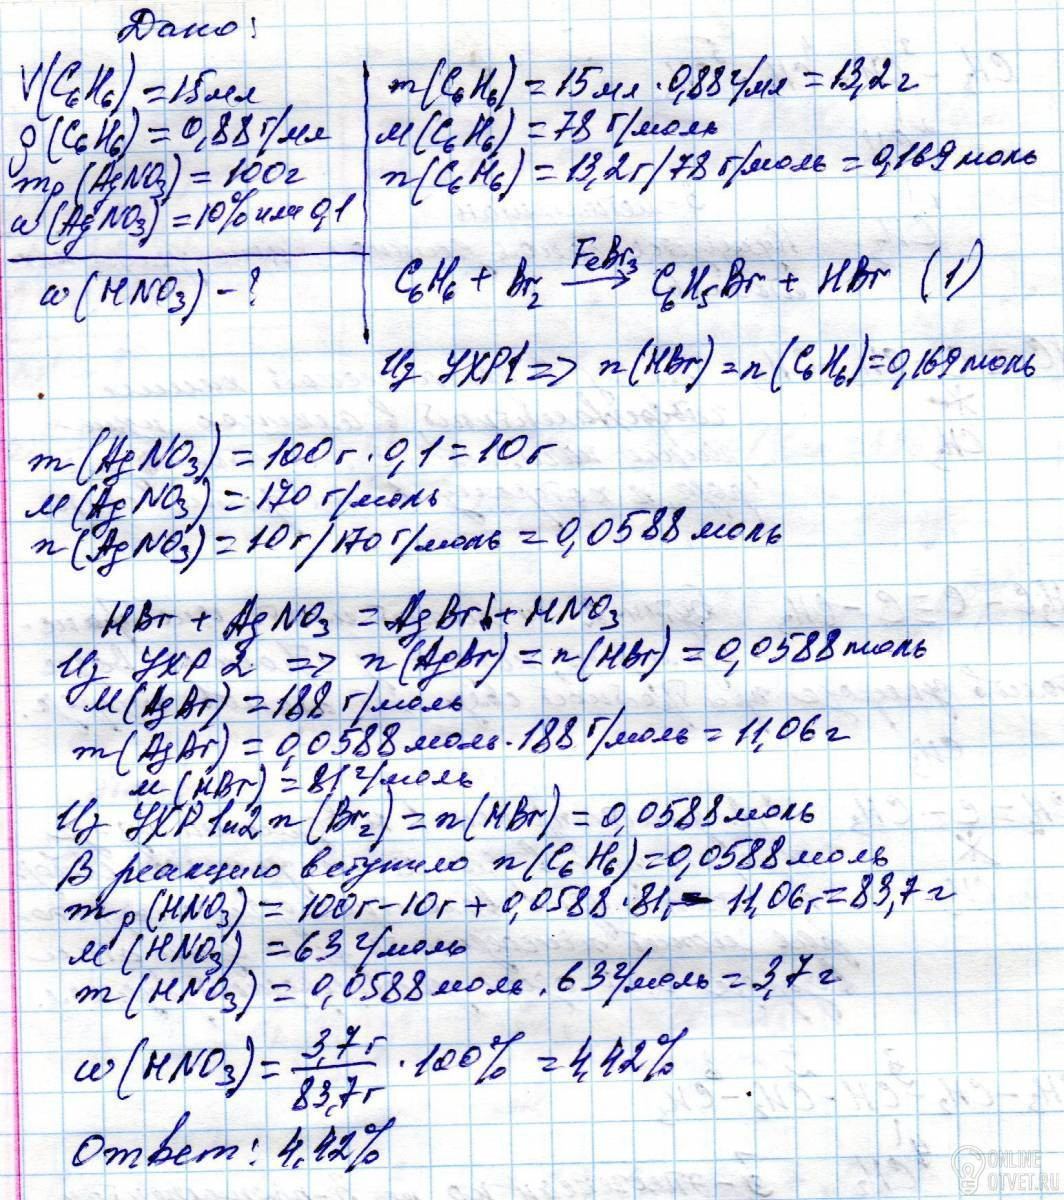 Дано:
V(C₆H₆) = 15 мл
ρ(C₆H₆) = 0,88 г/мл
mр(AgNO₃) = 100 г
ω(AgNO₃) = 10% или 0,1
ω(HNO₃) - ?
m(C₆H₆) = 15 мл · 0,88 г/мл = 13,2 г
M(C₆H₆) = 78 г/моль
n(C₆H₆) = 13,2 г/78 г/моль = 0,169 моль
C₆H₆ + Br₂ FeBr₃ → C₆H₅Br + HBr (1)
Из УХР1 => n(HBr) = n(C₆H₆) = 0,169 моль
m(AgNO₃) = 100 г · 0,1 = 10 г
M(AgNO₃) = 170 г/моль
n(AgNO₃) = 10 г/170 г/моль = 0,0588 моль
HBr + AgNO₃ = AgBr↓ + HNO₃
Из УХР 2 => n(AgBr) = n(HBr) = 0,0588 моль
M(AgBr) = 188 г/моль
m(AgBr) = 0,0588 моль · 188 г/моль = 11,06 г
M(HBr) = 81 г/моль
Из УХР 1и2 n(Br₂) = n(HBr) = 0,0588 моль
В реакцию вступило n(C₆H₆) = 0,0588 моль
mр(HNO₃) = 100г - 10г + 0,0588 · 81г - 11,06г = 83,7 г
M(HNO₃) = 63 г/моль
m(HNO₃) = 0,0588 моль · 63 г/моль = 3,7 г
ω(HNO₃) = 3,7 г / 83,7 г · 100% = 4,42%
Ответ: 4,42%
ONLINE
OTVET.RU